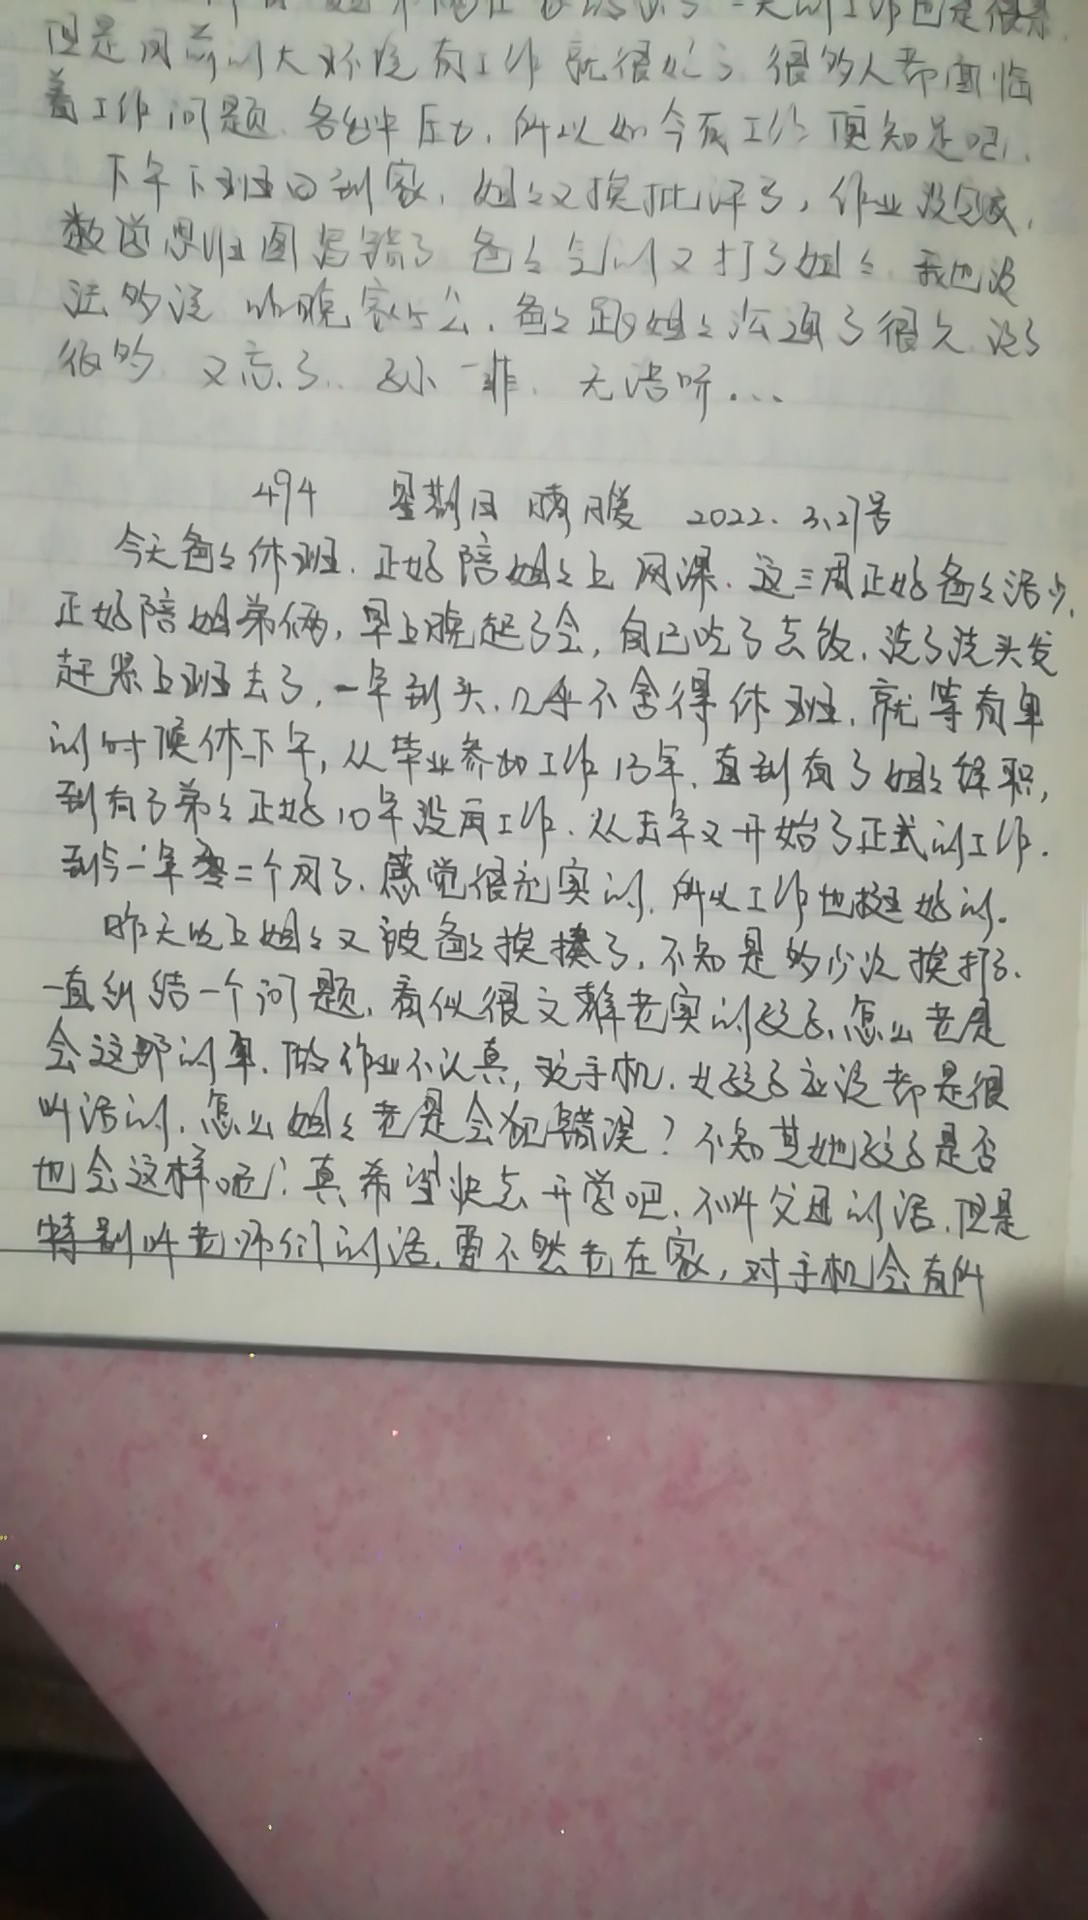 一天的工作也是很累
但是目前的大环境有工作就很好了 很多人都面临
着工作问题 各种压力, 所以如今有工作 更知足吧.
下午下班回到家, 姐々又挨批评了, 作业没完成,
数学思维图写错了 爸々气的又打了姐々 我也没
法多说 昨晚 爸々跟姐々沟通了很久 说了
很多 又忘了 无法听...
494 星期日 晴 暖 2022. 3.27号
今天爸々休班. 正好陪姐々上网课. 这三周正好爸々活少.
正好陪姐弟俩, 早上晚起了会, 自己吃了点饭. 洗了洗头发
赶紧上班去了, 一年到头. 几乎不舍得休班. 就等有事
的时候休下午, 从毕业参加工作13年. 直到有了姐々辞职,
到有了弟々正好10年没有工作. 从去年又开始了正式的工作.
到今一年零二个月了. 感觉很充实的. 所以工作也挺好的.
昨天晚上姐々又被爸々挨揍了, 不知是多少次挨打了.
一直纠结一个问题, 看似很文静老实的孩子, 怎么老是
会这那的事. 做作业不认真, 玩手机. 女孩子应该都是很
听话的, 怎么姐々老是会犯错误? 不知其她孩子是否
也会这样呢; 真希望快点开学吧. 不听父母的话. 但是
特别听老师们的话. 要不然老在家, 对手机会有所